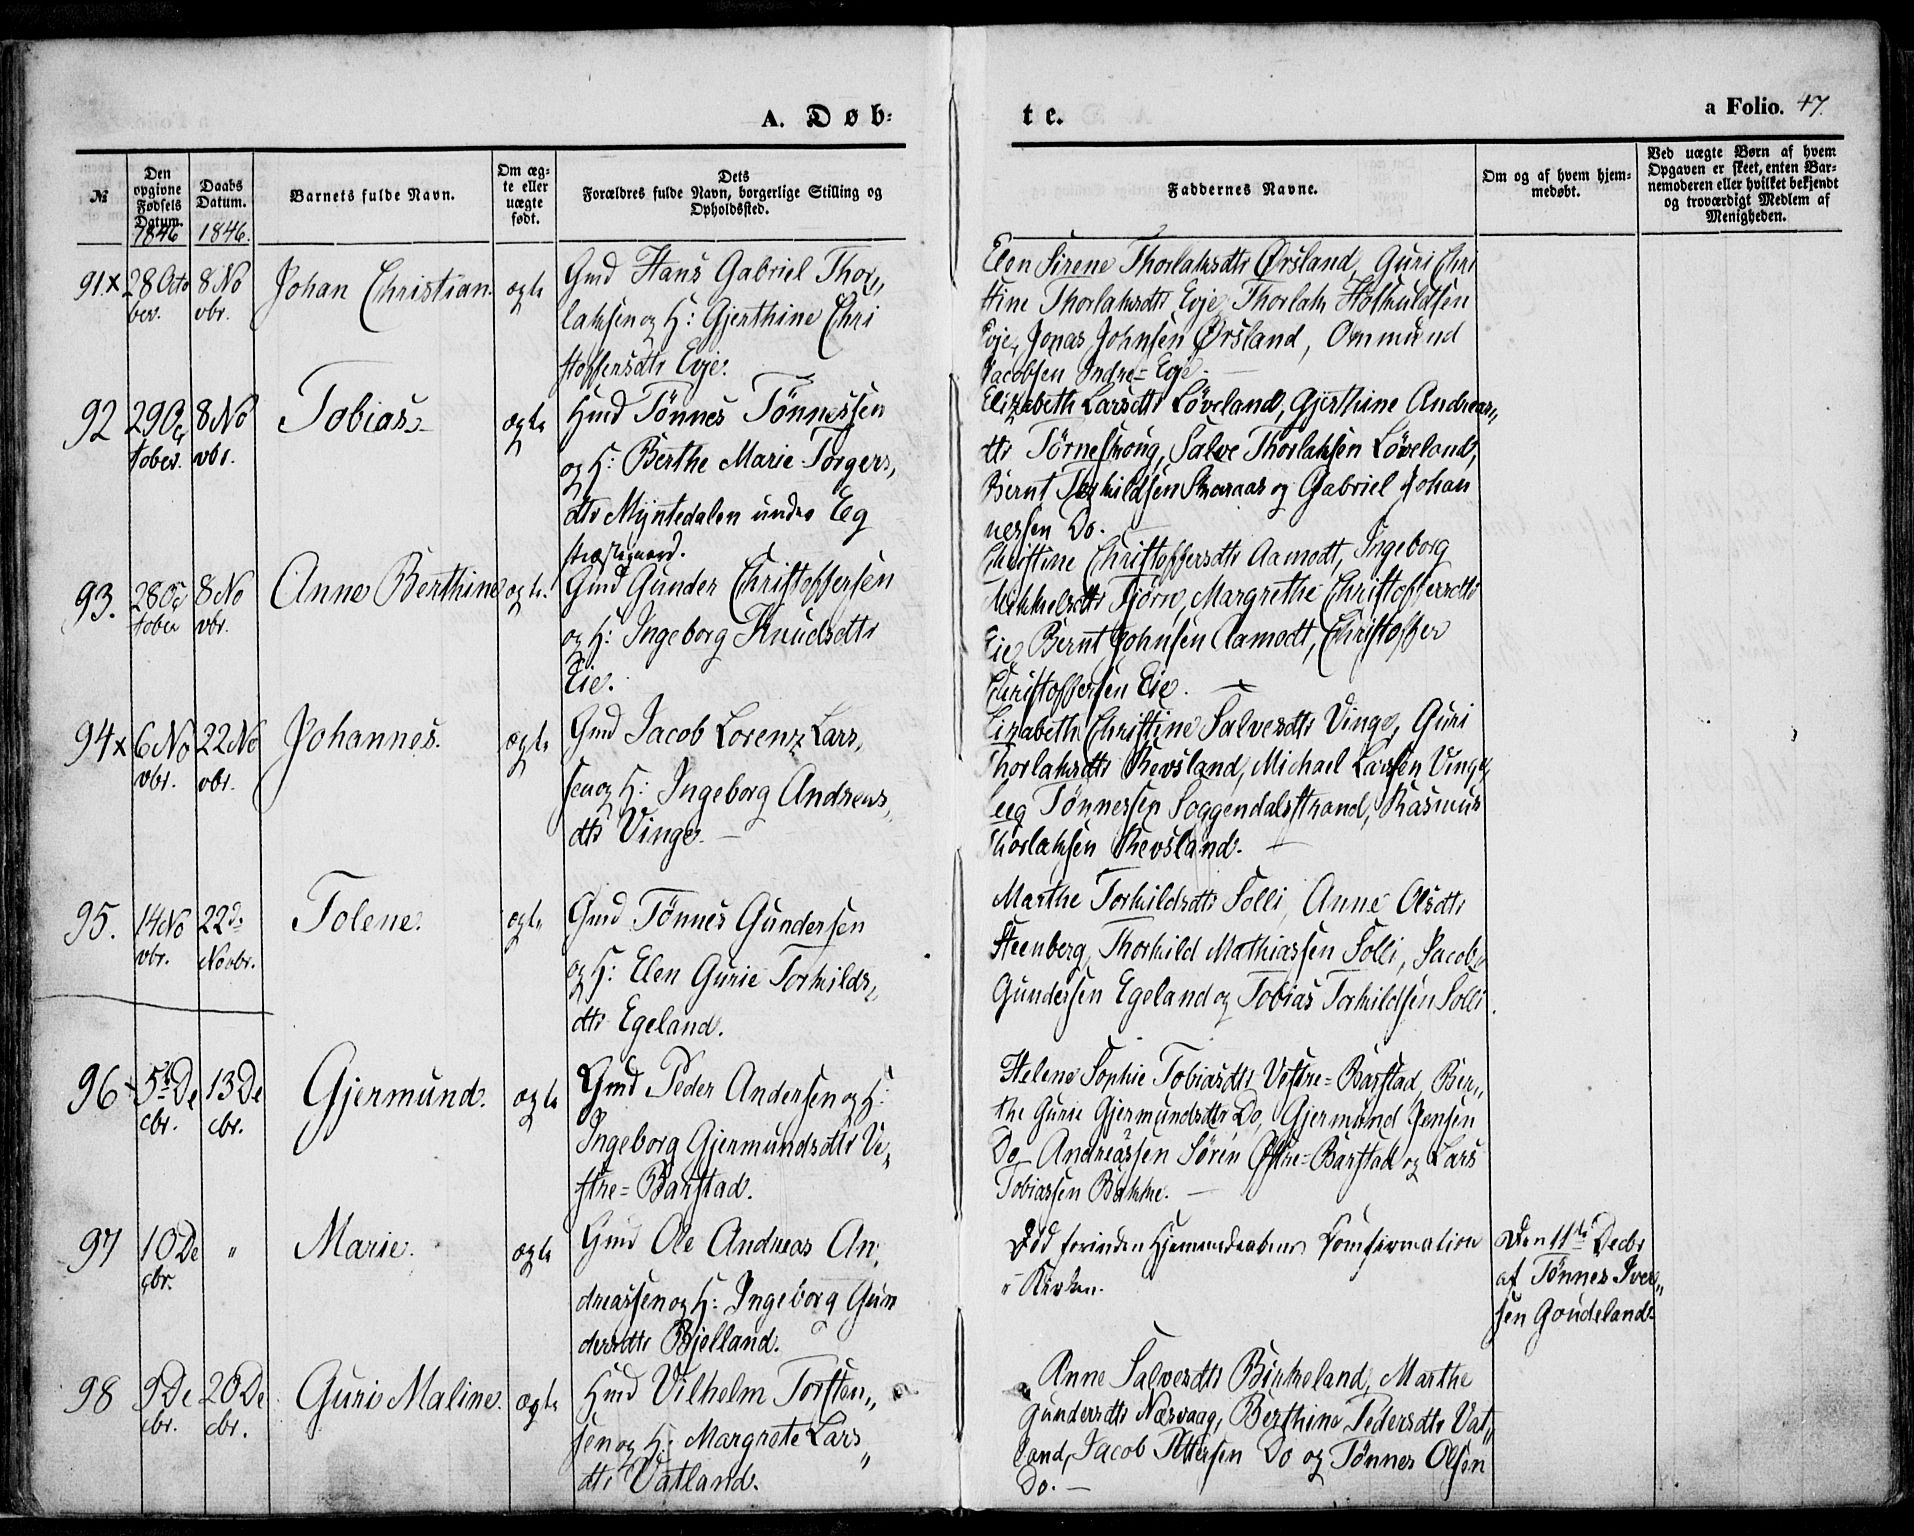 A. Døb-
te.
a Folio. 47.
№
Den opgivne Fødsels Datum.
1846
Daabs Datum.
1846.
Barnets fulde Navn.
Om ægte eller uægte født.
Dets
Forældres fulde Navn, borgerlige Stilling og
Opholdsted.
Faddernes Navne.
Om og af hvem hjem-
medøbt.
Ved uægte Børn af hvem
Opgaven er skeet, enten Bar-
nemoderen eller hvilket bekjendt
og troværdigt Medlem af
Menigheden.
91.x 28 Octo 8 No Johan Christian. ægte Gmd Hans Gabriel Thor„
ber. vbr. laksen og H: Gjerthine Chri
stoffersdtr Evje.
Elen Sirene Thorlaksdtr Ørsland, Guri Chri
stine Thorlaksdtr Evje, Thorlak Hoskuldsen
Evje, Jonas Johnsen Ørsland, Ommund
Jacobsen Indre=Evje.
92 29 Oc 8 No Tobias. ægte Hmd Tönnes Tönnessen
tober. vbr. og H: Berthe Marie Torgers„
dtr Myntedalen under Eg
præstegaard.
Elizabeth Larsdtr Löveland, Gjerthine Andreas„
dtr Törneskong, Salve Thorlaksen Löveland,
Bernt Terkildsen Skaraas og Gabriel Johan
nessen Do.
93. 28 Oc 8 No Anne Berthine ægte. Gmd Gunder Christoffersen
tober vbr. og H: Ingeborg Knudsdtr
Eie.
Christine Christoffersdtr Aamodt, Ingeborg
Mikkelsdtr Tjörn, Margrethe Christoffersdtr
Eie, Bernt Johnsen Aamodt, Christoffer
Christoffersen Eie.
94x 6 No 22 No Johannes. ægte Gmd Jacob Lorenz Lars„
vbr. vbr. sen og H: Ingeborg Andreas„
dtr Vinge.
Elizabeth Christine Salvesdtr Vinge, Guri
Thorlaksdtr Refsland, Michael Larsen Vinge,
Leeg Tönnessen Soggendalsstrand, Rasmus
Thorlaksen Refsland.
95. 14 No 22de Tolene. ægte Gmd Tönnes Gundersen
vbr. Novbr. og H: Elen Gurie Torkilds„
dtr Egeland.
Marthe Torkildsdtr Solli, Anne Olsdtr
Steenberg, Thorkild Mathiassen Solli, Jacob
Gundersen Egeland og Tobias Torkildsen Solli.
96x 5te De 13 De Gjermund. ægte Gmd Peder Andersen og H:
cbr. cbr. Ingeborg Gjermundsdtr Ve„
stre=Barstad.
Helene Sophie Tobiasdtr Vestre=Barstad, Ber„
the Gurie Gjermundsdtr Do, Gjermund Jensen
Do Andreassen Sören Østre=Barstad og Lars
Tobiassen Bakke.
97 10 De „ Marie. ægte Gmd Ole Andreas An„
cbr. dreassen og H: Ingeborg Gun
dersdtr Bjelland.
Död forinden Hjemmedaabens Confirmation
i Kirken.
Den 11te Decbr
af Tönnes Iver„
sen Goudeland.
98 9 De 20 De Guri Maline. ægte Hmd Vilhelm Torsten„
cbr. cbr. sen og H: Margrete Lars„
dtr Vatland.
Anne Salvesdtr Birkeland, Marthe
Gundersdtr Nærvaag, Berthine Pedersdtr Vat„
land, Jacob Pettersen Do og Tönnes Olsen
Do.